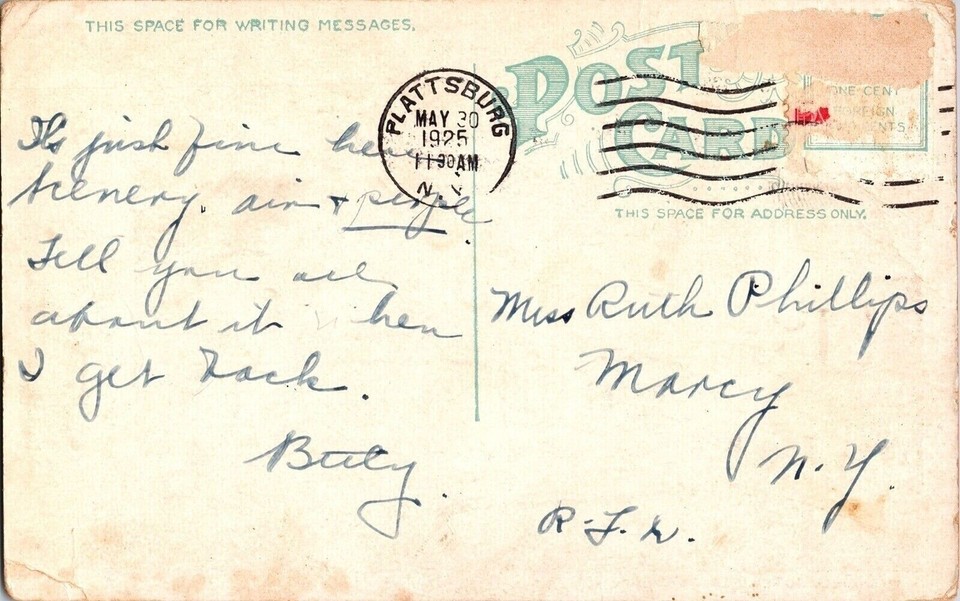 THIS SPACE FOR WRITING MESSAGES.
POST
CARD
ONE CENT
FOREIGN
PLATTSBURG
MAY 30
1925
11 30 AM
N.Y.
THIS SPACE FOR ADDRESS ONLY.
It's just fine here
Scenery, air & people
Tell you all
about it when
I get back.
Miss Ruth Phillips
Marcy
N.Y.